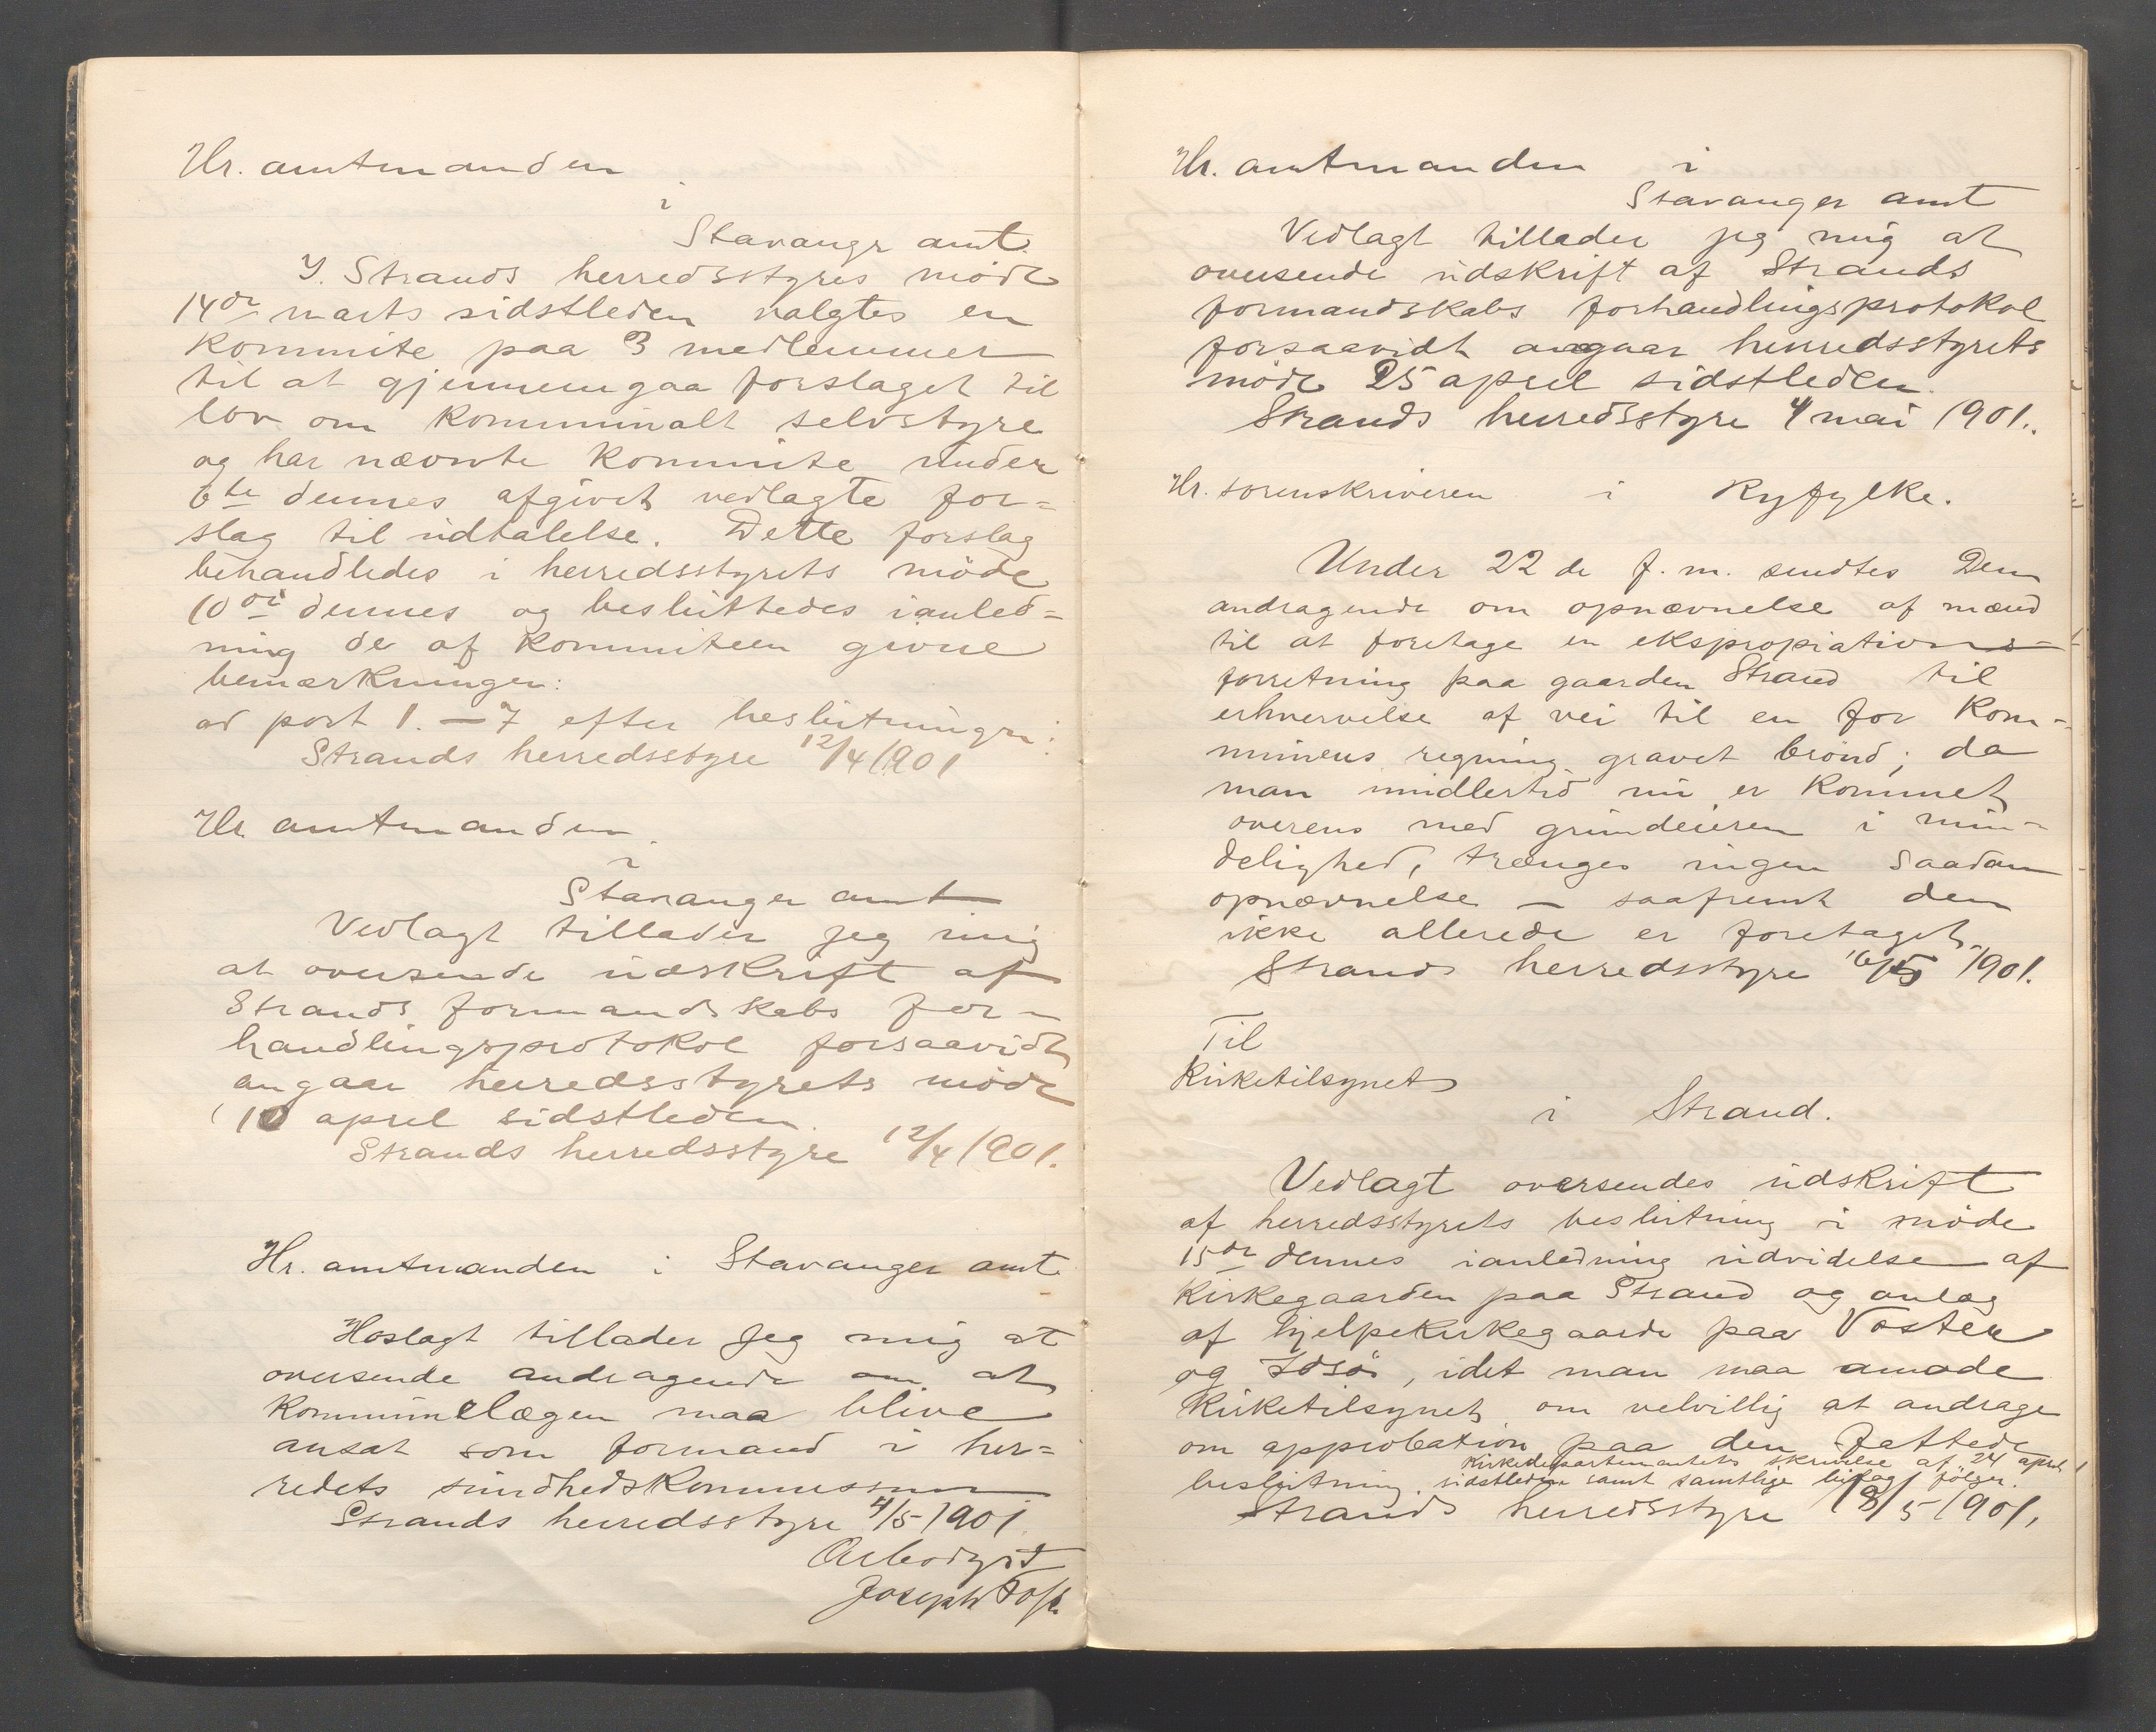 Hr. amtmanden
i
Stavangr amt.
I Strands herredsstyres møde
14de marts sidstleden valgtes en
kommite paa 3 medlemmer
til at gjennemgaa forslaget til
lov om kommunalt selvstyre
og har nævnte kommite under
6te dennes afgivet vedlagte for=
slag til udtalelse. Dette forslag
behandledes i herredsstyrets møde
10de dennes og besluttedes ianled=
ning de af kommiteen givne
bemærkninger:
ad post 1. – 7 efter beslutningen:
Strands herredsstyre 12/4 1901
Hr. amtmanden
i
Stavanger amt
Vedlagt tillader jeg mig
at oversende udskrift af
Strands formandskabs for-
handlingsprotokol forsaavidt
angaar herredsstyrets møde
10 april sidstleden.
Strands herredsstyre 12/4 1901.
Hr. amtmanden i Stavanger amt.
Hoslagt tillader jeg mig at
oversende andragende om at
kommunelægen maa blive
ansat som formand i her=
redets sundhedskommission
Strands herredsstyre 4/5 1901.
Ærbødigst
Joseph
Hr. amtmanden i
Stavanger amt
Vedlagt tillader jeg mig at
oversende udskrift af Strands
formandskabs forhandlingsprotokol
forsaavidt angaar herredsstyrets
møde 25 april sidstleden.
Strands herredsstyre 4 mai 1901.
Hr. sorenskriveren i Ryfylke.
Under 22 de f. m. sendtes Dem
andragende om opnævnelse af mænd
til at foretage en ekspropiations-
forretning paa gaarden Strand til
erhvervelse af vei til en for kom-
munens regning gravet brønd; da
man imidlertid nu er kommet
overens med grundeieren i min-
delighed, trænges ingen saadan
opnævnelse – saafremt den
ikke allerede er foretaget.
Strands herredsstyre 16/5 1901.
Til
Kirketilsynet
i Strand.
Vedlagt oversendes udskrift
af herredsstyrets beslutning i møde
15de dennes ianledning udvidelse af
kirkegaarden paa Strand og anlæg
af hjelpekirkegaarde paa Vostere
og Idsø, idet man maa anmode
kirketilsynet om velvillig at andrage
om approbation paa den fattede
kirkedepartementets skrivelse af 24 april
beslutning. sidstleden samt samtlige bilag følger.
Strands herredsstyre 18/5 1901.